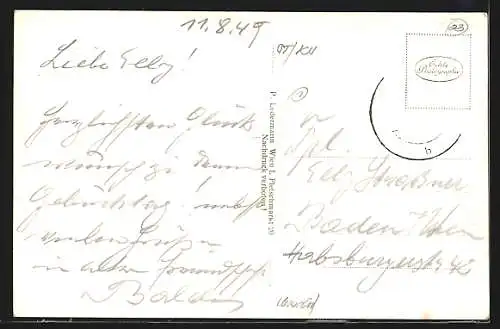 11.8.49
Liebe Elly!
Herzlichsten Glück
wunsch zu deinem
Geburtstag nebst
vielen Grüßen
in alter Freundschaft
P. Ledermann Wien I. Fleischmarkt 20
Nachdruck verboten!
Echte
Photographie
23
Elly
Baden b/Wien
Habsburgerstr 42